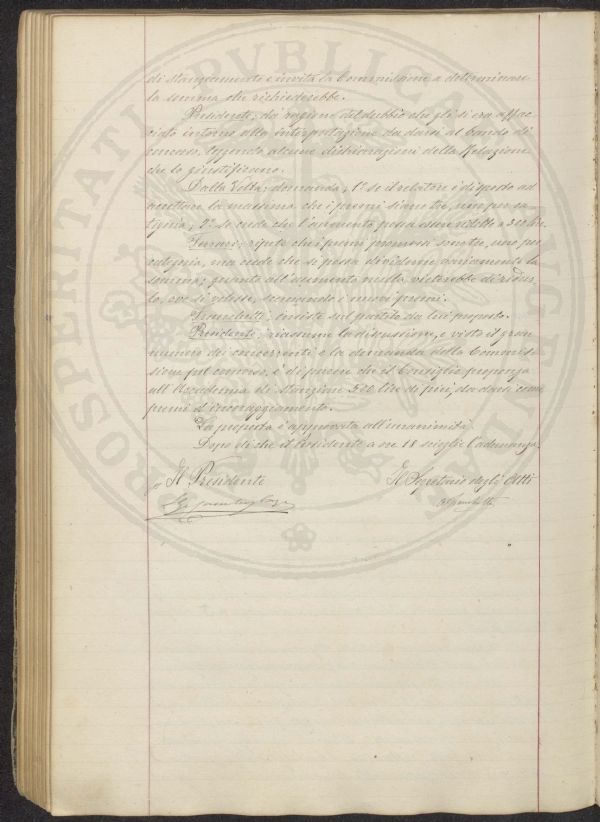 di stanziamento e invita la Commissione a determinare
la somma che richiederebbe.
Presidente, dà ragione del dubbio che gli si era affac-
ciato intorno alla interpretazione da darsi al bando di
concorso, leggendo alcune dichiarazioni della Relazione
che lo giustificano.
Dalla Volta, domanda, 1.º se il relatore è disposto ad
accettare la massima che i premi siano tre, uno per ca-
tegoria; 2.º se crede che l'aumento possa essere ridotto a 300 lire.
ripete che i premi promessi sono tre, uno per
categoria, ma crede che si possa dividerne variamente la
somma; quanto all'aumento nulla vieterebbe di ridur-
lo, ove si volesse, scemando i nuovi premi.
insiste sul partito da lui proposto.
Presidente, riassume la discussione, e visto il gran
numero di concorrenti e la domanda della Commis-
sione pel concorso, è di parere che il Consiglio proponga
all'Accademia di stanziare 500 lire di più, da darsi come
premi d'incoraggiamento.
La proposta è approvata all'unanimità.
Dopo di che il Presidente a ore 18 scioglie l'adunanza.
Il Presidente Il Segretario degli Atti
PROSPERITATI PVBLICAE AVGENDAE